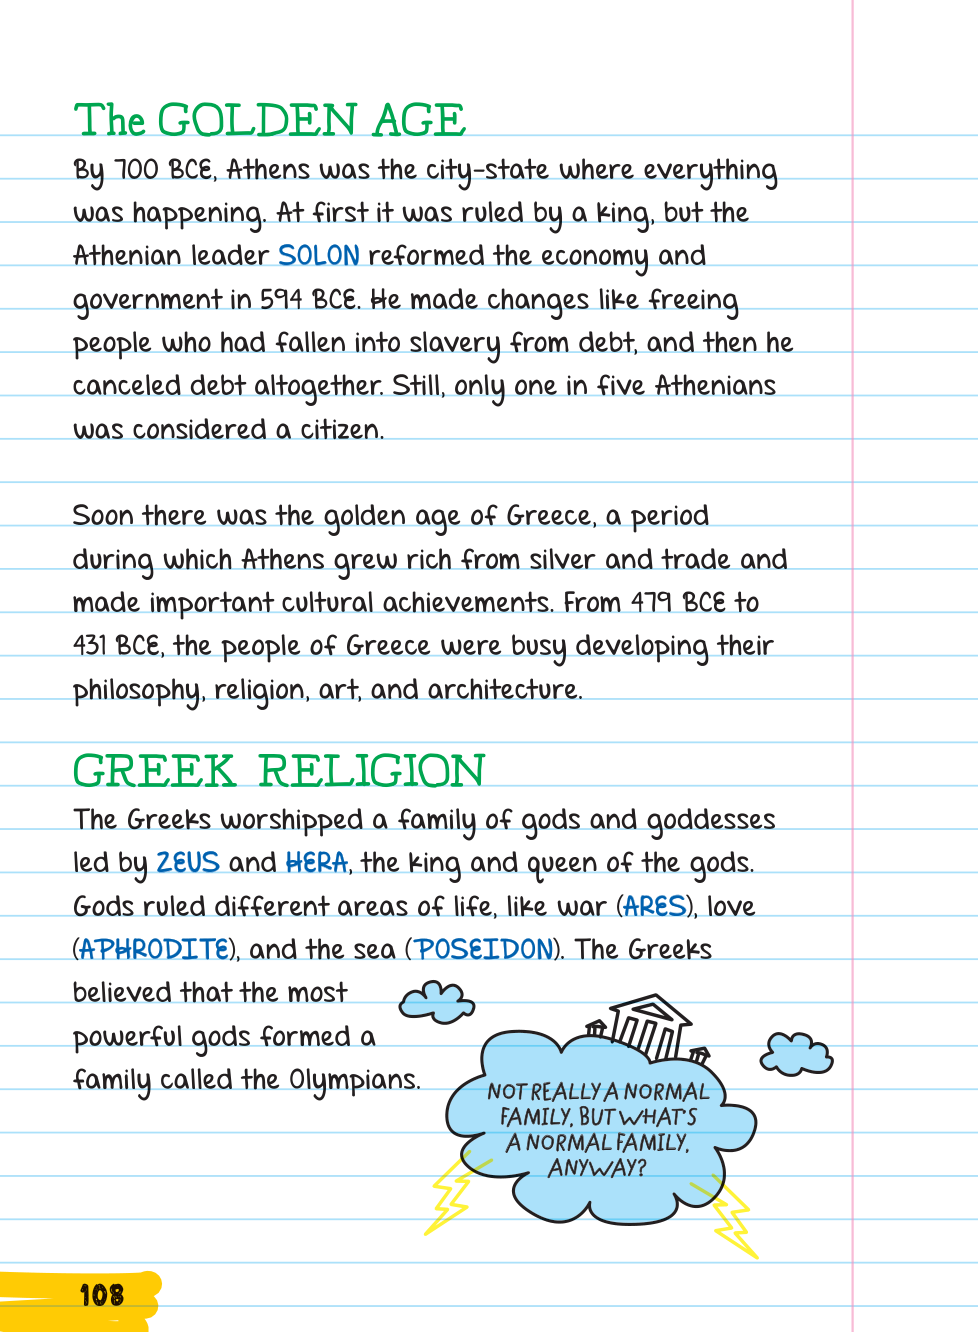 The GOLDEN AGE
By 700 BCE, Athens was the city-state where everything
was happening. At first it was ruled by a king, but the
Athenian leader SOLON reformed the economy and
government in 594 BCE. He made changes like freeing
people who had fallen into slavery from debt, and then he
canceled debt altogether. Still, only one in five Athenians
was considered a citizen.
Soon there was the golden age of Greece, a period
during which Athens grew rich from silver and trade and
made important cultural achievements. From 479 BCE to
431 BCE, the people of Greece were busy developing their
philosophy, religion, art, and architecture.
GREEK RELIGION
The Greeks worshipped a family of gods and goddesses
led by ZEUS and HERA, the king and queen of the gods.
Gods ruled different areas of life, like war (ARES), love
(APHRODITE), and the sea (POSEIDON). The Greeks
believed that the most
powerful gods formed a
family called the Olympians.
NOT REALLY A NORMAL
FAMILY, BUT WHAT'S
A NORMAL FAMILY,
ANYWAY?
108